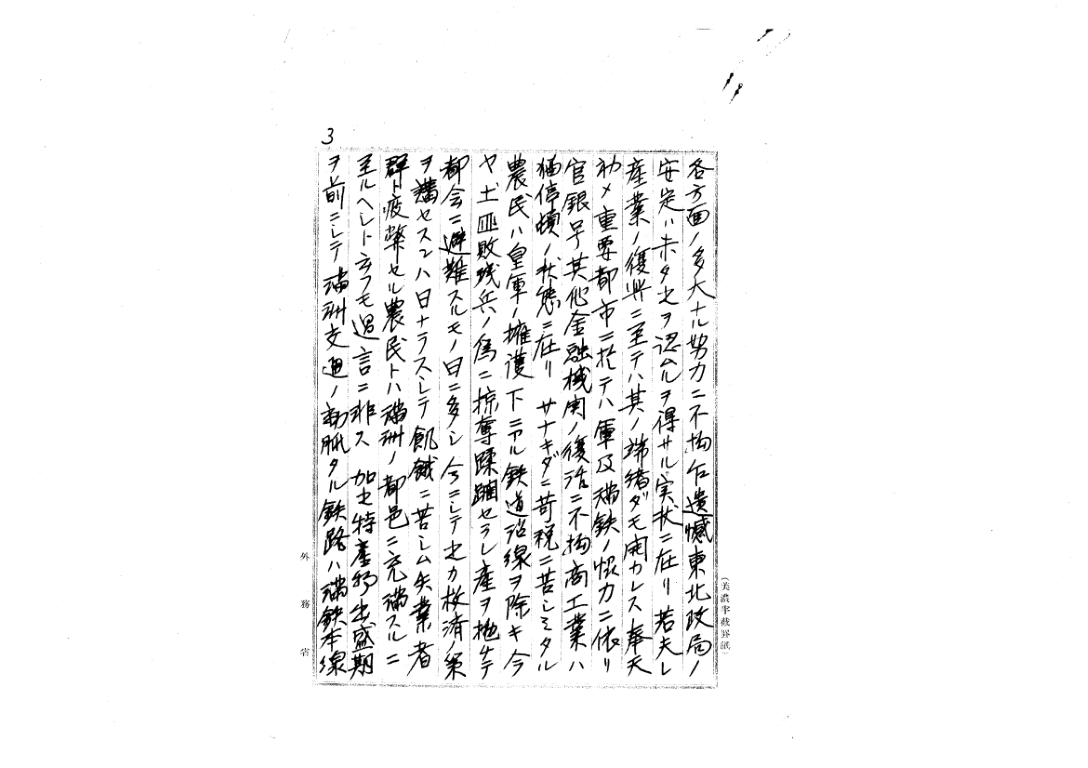 3
各方面ノ多大ナル努力ニ不拘乍遺憾東北政局ノ
安定ハ未タ之ヲ認ムルヲ得サル実状ニ在リ若夫レ
産業ノ復興ニ至テハ其ノ端緒ダモ開カレス奉天
初メ重要都市ニ於テハ軍及満鉄ノ協力ニ依リ
官銀号其他金融機関ノ復活ニ不拘商工業ハ
猶信憤ノ状態ニ在リ サナキダニ苛税ニ苦シミタル
農民ハ皇軍ノ擁護下ニアル鉄道沿線ヲ除キ今
ヤ土匪敗残兵ノ為ニ掠奪蹂躙セラレ産ヲ抛チテ
都会ニ避難スルモノ日ニ多シ今ニシテ之カ救済ノ策
ヲ講セスンハ日ナラスシテ飢餓ニ苦シム失業者
群ト疲弊セル農民トハ満洲ノ都邑ニ充満スルニ
至ルヘシト云フモ過言ニ非ス 加之特産物出盛期
ヲ前ニシテ満洲交通ノ動脈タル鉄路ハ満鉄本線
(美濃半截罫紙)
外務省